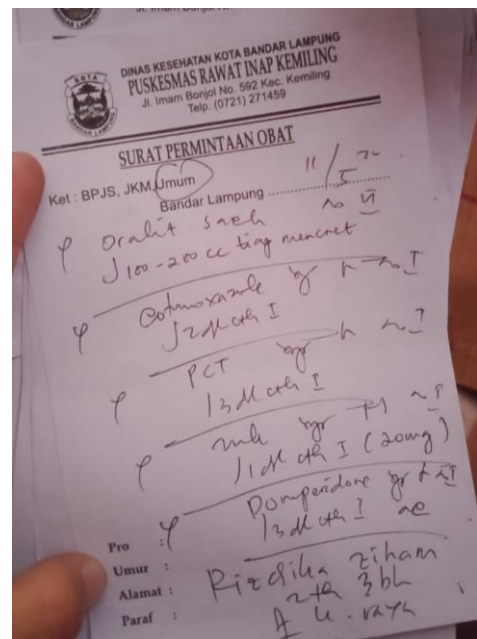 DINAS KESEHATAN KOTA BANDAR LAMPUNG
PUSKESMAS RAWAT INAP KEMILING
Jl. Imam Bonjol No. 592 Kec. Kemiling
Telp. (0721) 271459
KOTA
BANDAR LAMPUNG
SURAT PERMINTAAN OBAT
Ket : BPJS, JKM, Umum
11/5
Bandar Lampung ....................
Oralit sach no VI
∫ 100-200 cc tiap mencret
Cotrimoxazole syr no I
∫ 2 dd cth I
PCT syr no I
∫ 3 dd cth I
syr no I
∫ 1 dd cth I (20mg)
Domperidone syr no I
∫ 3 dd cth I ac
Pro :
Umur : 2 th 3 bln
Alamat :
Paraf :